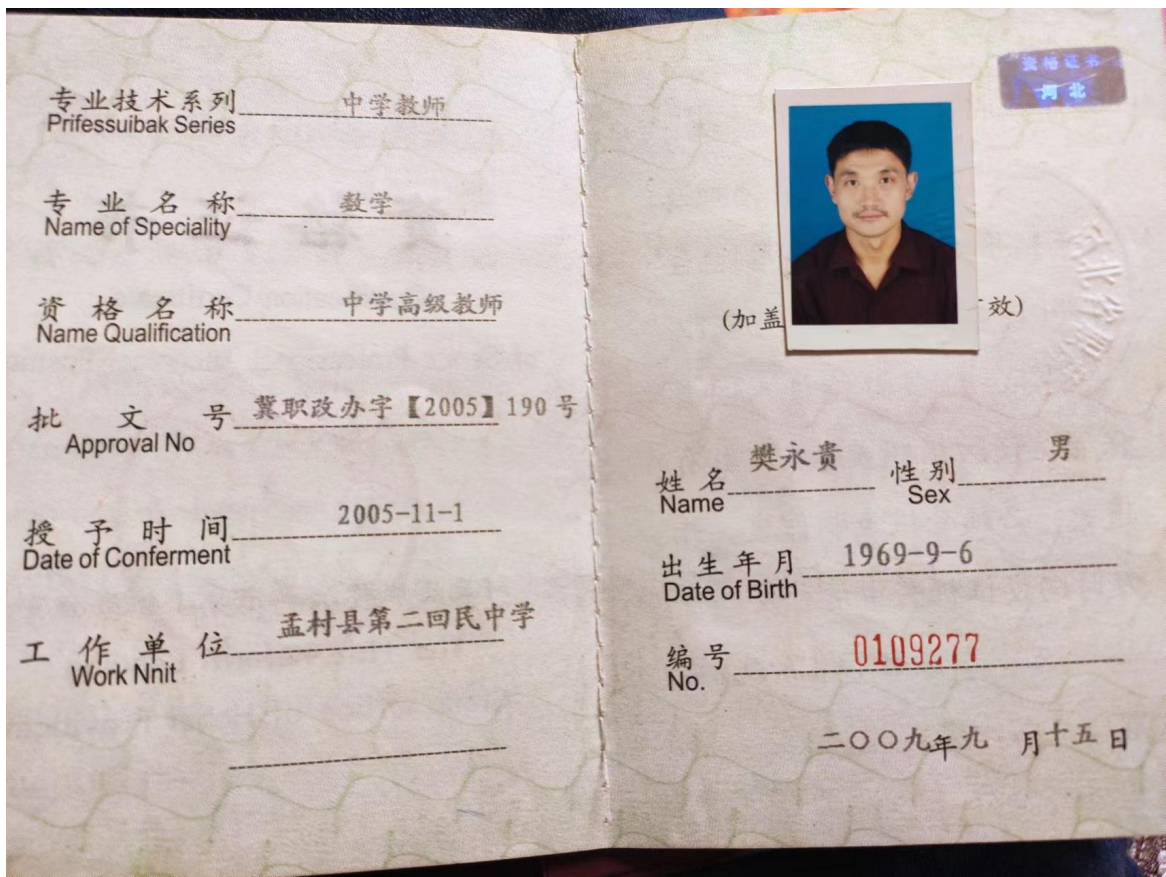 专业技术系列 中学教师
Prifessuibak Series
专业名称 数学
Name of Speciality
资格名称 中学高级教师
Name Qualification
批文号 冀职改办字【2005】190号
Approval No
授予时间 2005-11-1
Date of Conferment
工作单位 孟村县第二回民中学
Work Nnit
资格证书
河北
(加盖 效)
姓名 樊永贵 性别 男
Name Sex
出生年月 1969-9-6
Date of Birth
编号 0109277
No.
二〇〇九年九月十五日